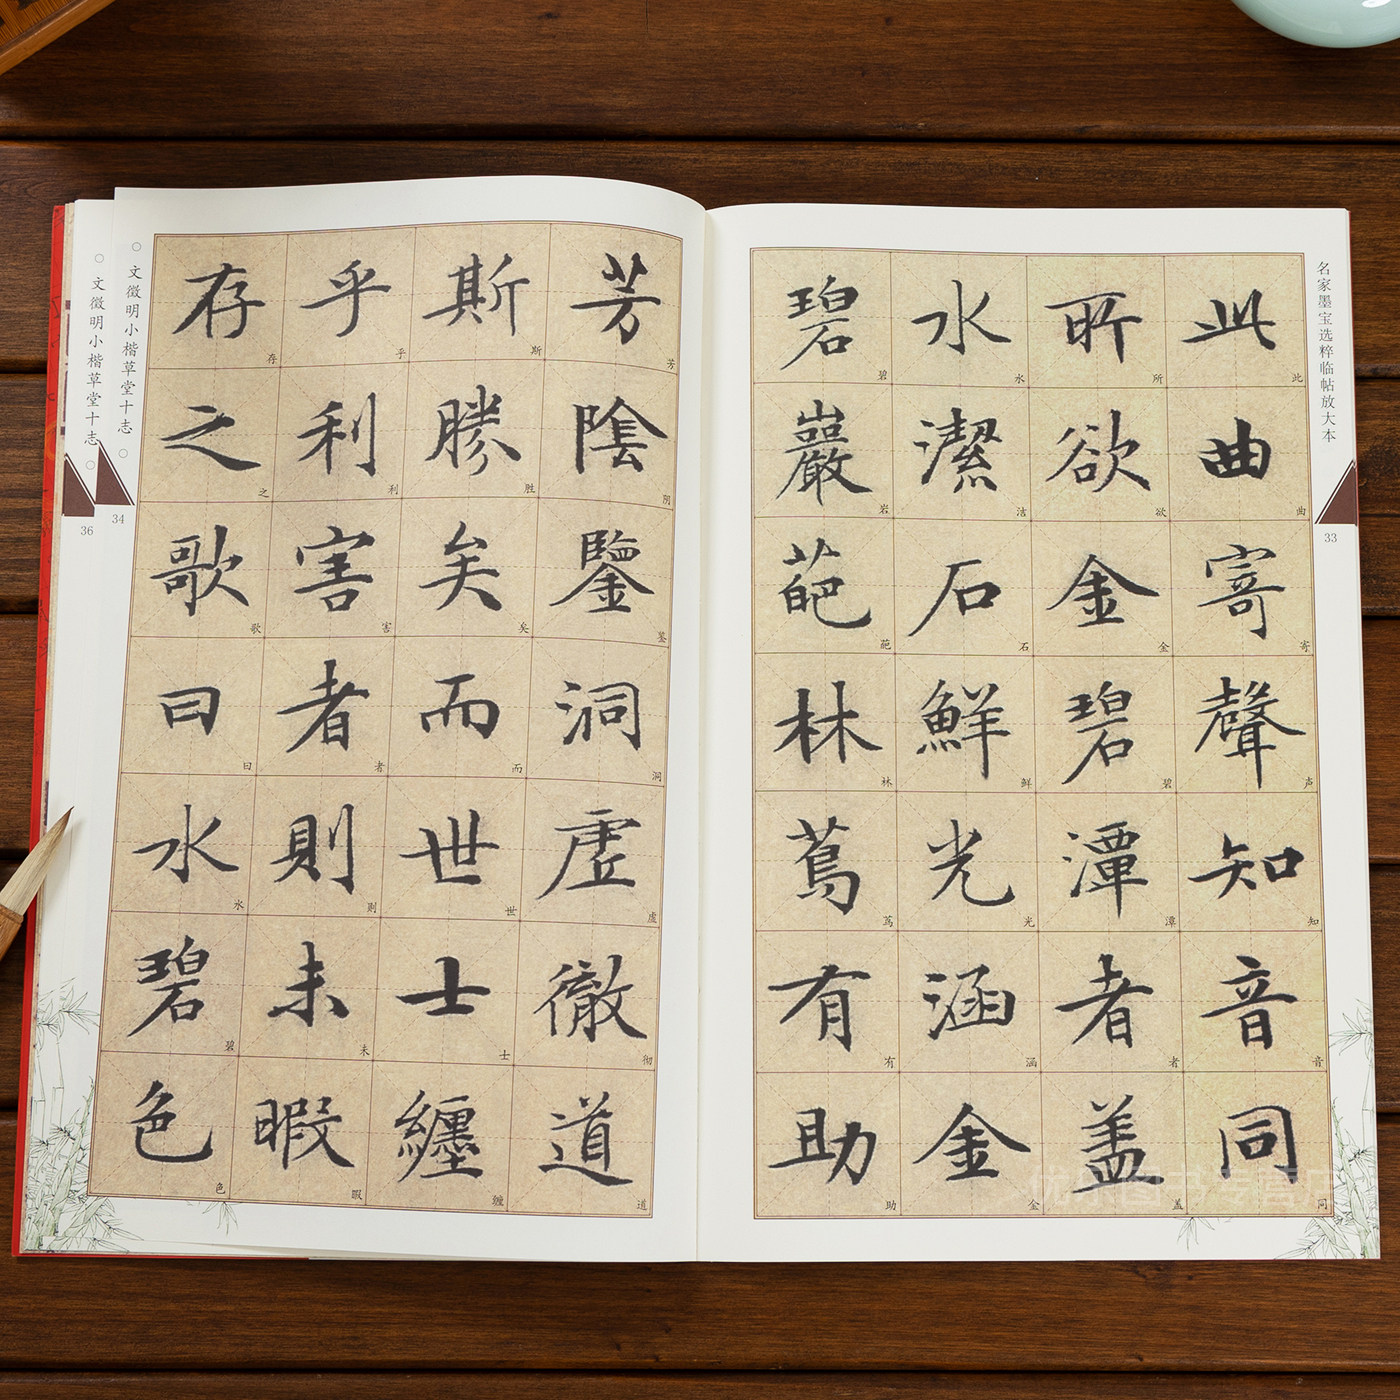 名家墨宝选粹临帖放大本
33
此曲寄聲知音同
此曲寄声知音同
所欲金碧潭者盖
所欲金碧潭者盖
水潔石鮮光涵金
水洁石鲜光涵金
碧巖葩林蔦有助
碧岩葩林茑有助
芳陰鑒洞虛徹道
芳阴鉴洞虚彻道
斯勝矣而世士纏
斯胜矣而世士缠
乎利害者則未暇
乎利害者则未暇
存之歌曰水碧色
存之歌曰水碧色
文徵明小楷草堂十志
34
文徵明小楷草堂十志
36